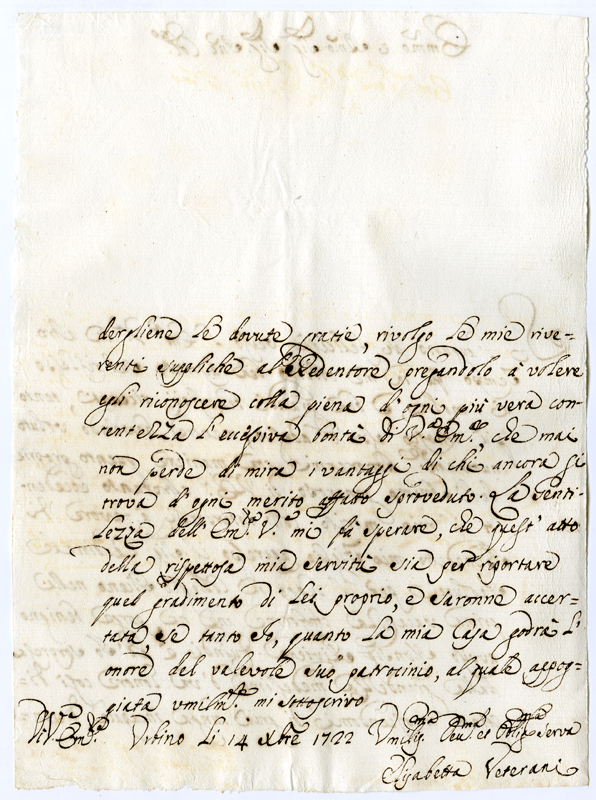 dergliene le dovute gratie, rivolgo le mie rive=
renti suppliche al Redentore pregandolo à volere
egli riconoscere colla piena d'ogni più vera con=
tentezza l'eccessiva bontà di V.ª Em.ª, che mai
non perde di mira i vantaggi di chi ancora si
trova d'ogni merito affatto sproveduto. La genti=
lezza dell'Em.ª V.ª mi fà sperare, che quest'atto
della rispettosa mia servitù sia per riportare
quel gradimento di Lei proprio, e saronne accer=
tata, se tanto Io, quanto la mia Casa godrà l'
onore del valevole suo patrocinio, al quale appog=
giata umilm.te mi sottoscrivo
Di V.ª Em.ª Urbino li 14 Xbre 1722 Umiliss.ma Dev.ma et Obblig.ma Serva
Elisabetta Veterani